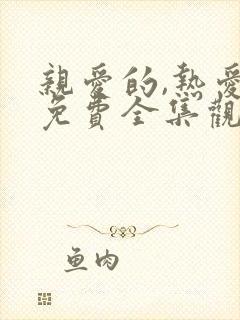 親愛的,熱愛
免費全集觀
鱼肉